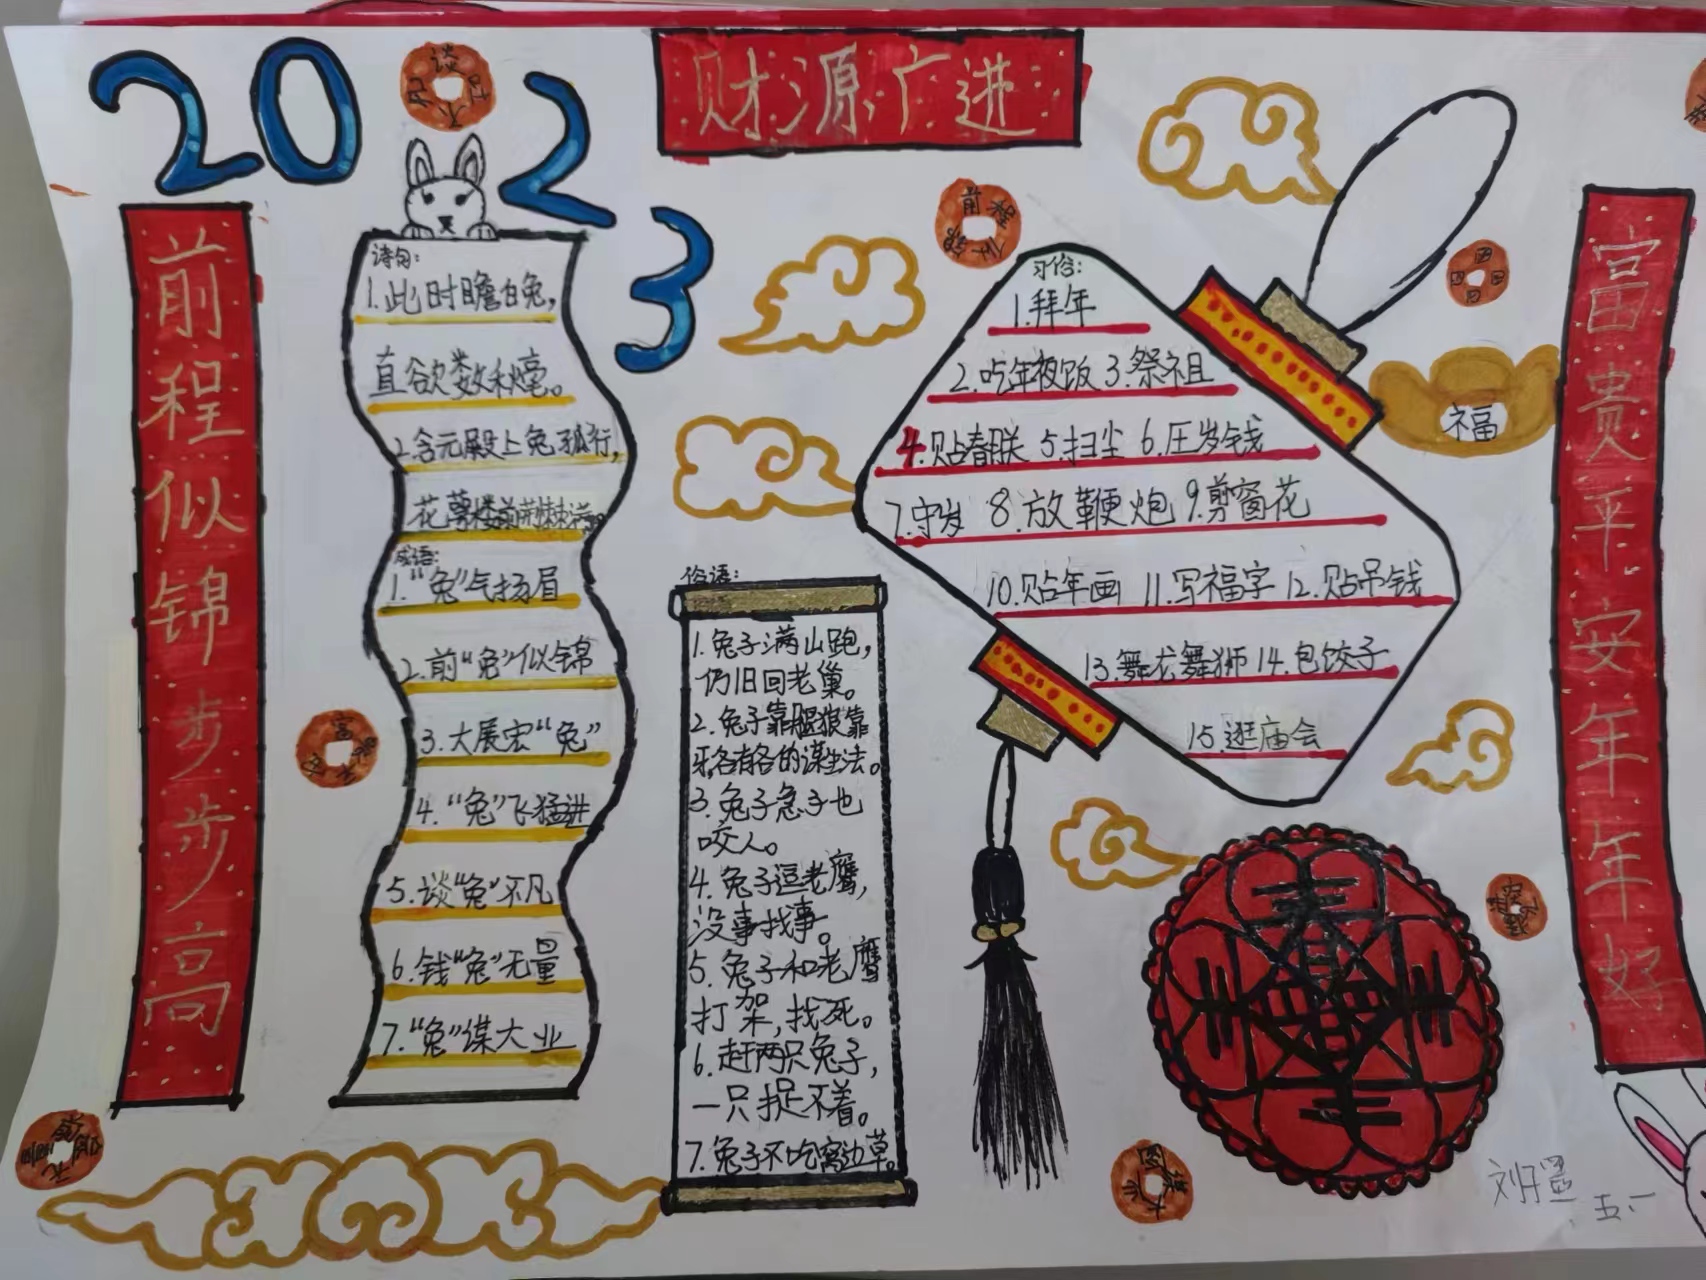 2023
财源广进
前程似锦步步高
诗句:
1.此时瞻白兔,
直欲数秋毫。
2.含元殿上兔狐行,
花萼楼前荆棘满。
成语:
1.“兔”气扬眉
2.前“兔”似锦
3.大展宏“兔”
4.“兔”飞猛进
5.谈“兔”不凡
6.钱“兔”无量
7.“兔”谋大业
俗语:
1.兔子满山跑,
仍旧回老巢。
2.兔子靠腿狼靠
牙,各有各的谋生法。
3.兔子急了也
咬人。
4.兔子逗老鹰,
没事找事。
5.兔子和老鹰
打架,找死。
6.赶两只兔子,
一只捉不着。
7.兔子不吃窝边草。
习俗:
1.拜年
2.吃年夜饭 3.祭祖
4.贴春联 5.扫尘 6.压岁钱
7.守岁 8.放鞭炮 9.剪窗花
10.贴年画 11.写福字 12.贴吊钱
13.舞龙舞狮 14.包饺子
15.逛庙会
福
富贵平安年年好
春
五.一